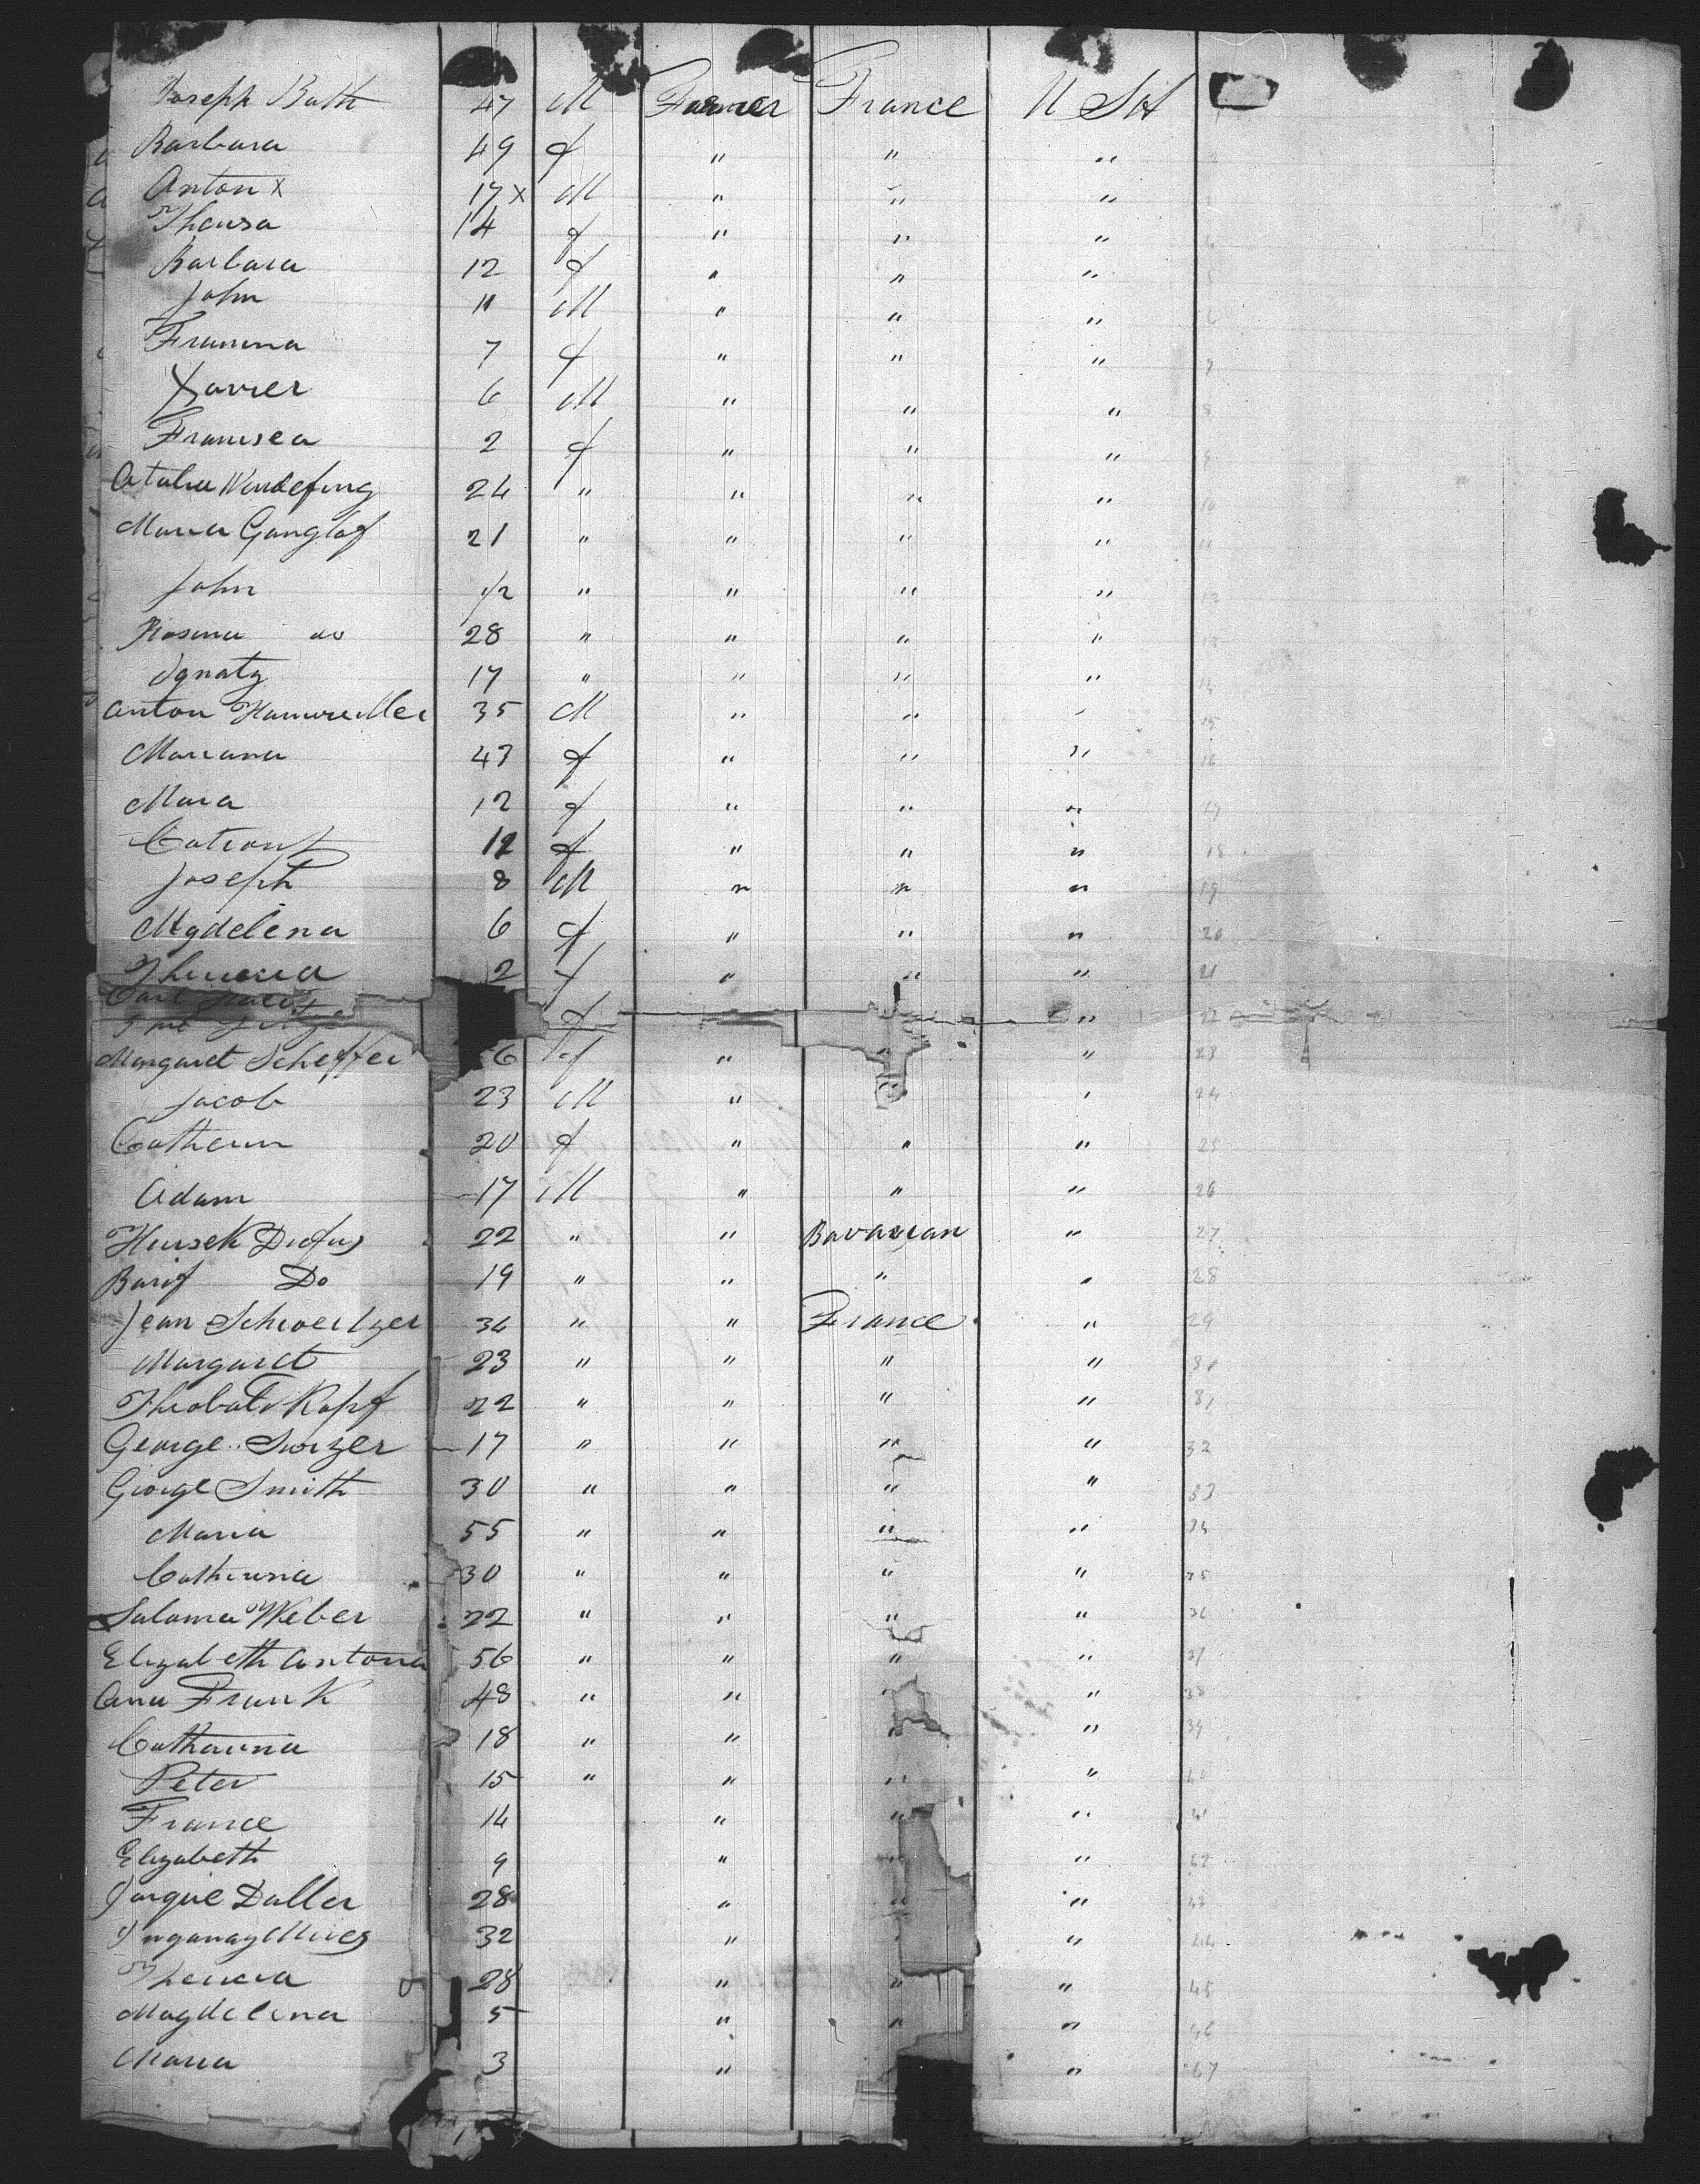 Joseph Buth 47 M Farmer France U St 1
Barbara 49 f " " " 2
Anton x 17 x M " " " 3
Theursa 14 f " " " 4
Barbara 12 f " " " 5
John 11 M " " " 6
Franuna 7 f " " " 7
Xavier 6 M " " " 8
Francisca 2 f " " " 9
24 " " " " 10
Maria Ganglof 21 " " " " 11
John 1/2 " " " " 12
Rosina do 28 " " " " 13
Ignatz 17 " " " " 14
Anton 35 M " " " 15
Mariana 43 f " " " 16
Maria 12 f " " " 17
12 f " " " 18
Joseph 8 M " " " 19
Mgdelena 6 f " " " 20
2 f " " " 21
Carl
f " 22
Margaret Scheffer 6 f " " " 23
Jacob 23 M " " " 24
Catherin 20 f " " " 25
Adam 17 M " " " 26
22 " " Bavarian " 27
Do 19 " " " " 28
Jean Schweitzer 34 " " France " 29
Margaret 23 " " " " 30
Theobald Kopf 22 " " " " 31
George Swizer 17 " " " " 32
George Smith 30 " " " " 33
Maria 55 " " " " 34
Catherina 30 " " " " 35
Saloma Weber 22 " " " " 36
Elizabeth Antona 56 " " " " 37
Ana Frank 48 " " " " 38
Catharina 18 " " " " 39
Peter 15 " " " " 40
France 14 " " " 41
Elizabeth 9 " " " 42
Daller 28 " " " 43
32 " " " 44
28 " " " 45
Magdelena 5 " " " 46
Maria 3 " " 47